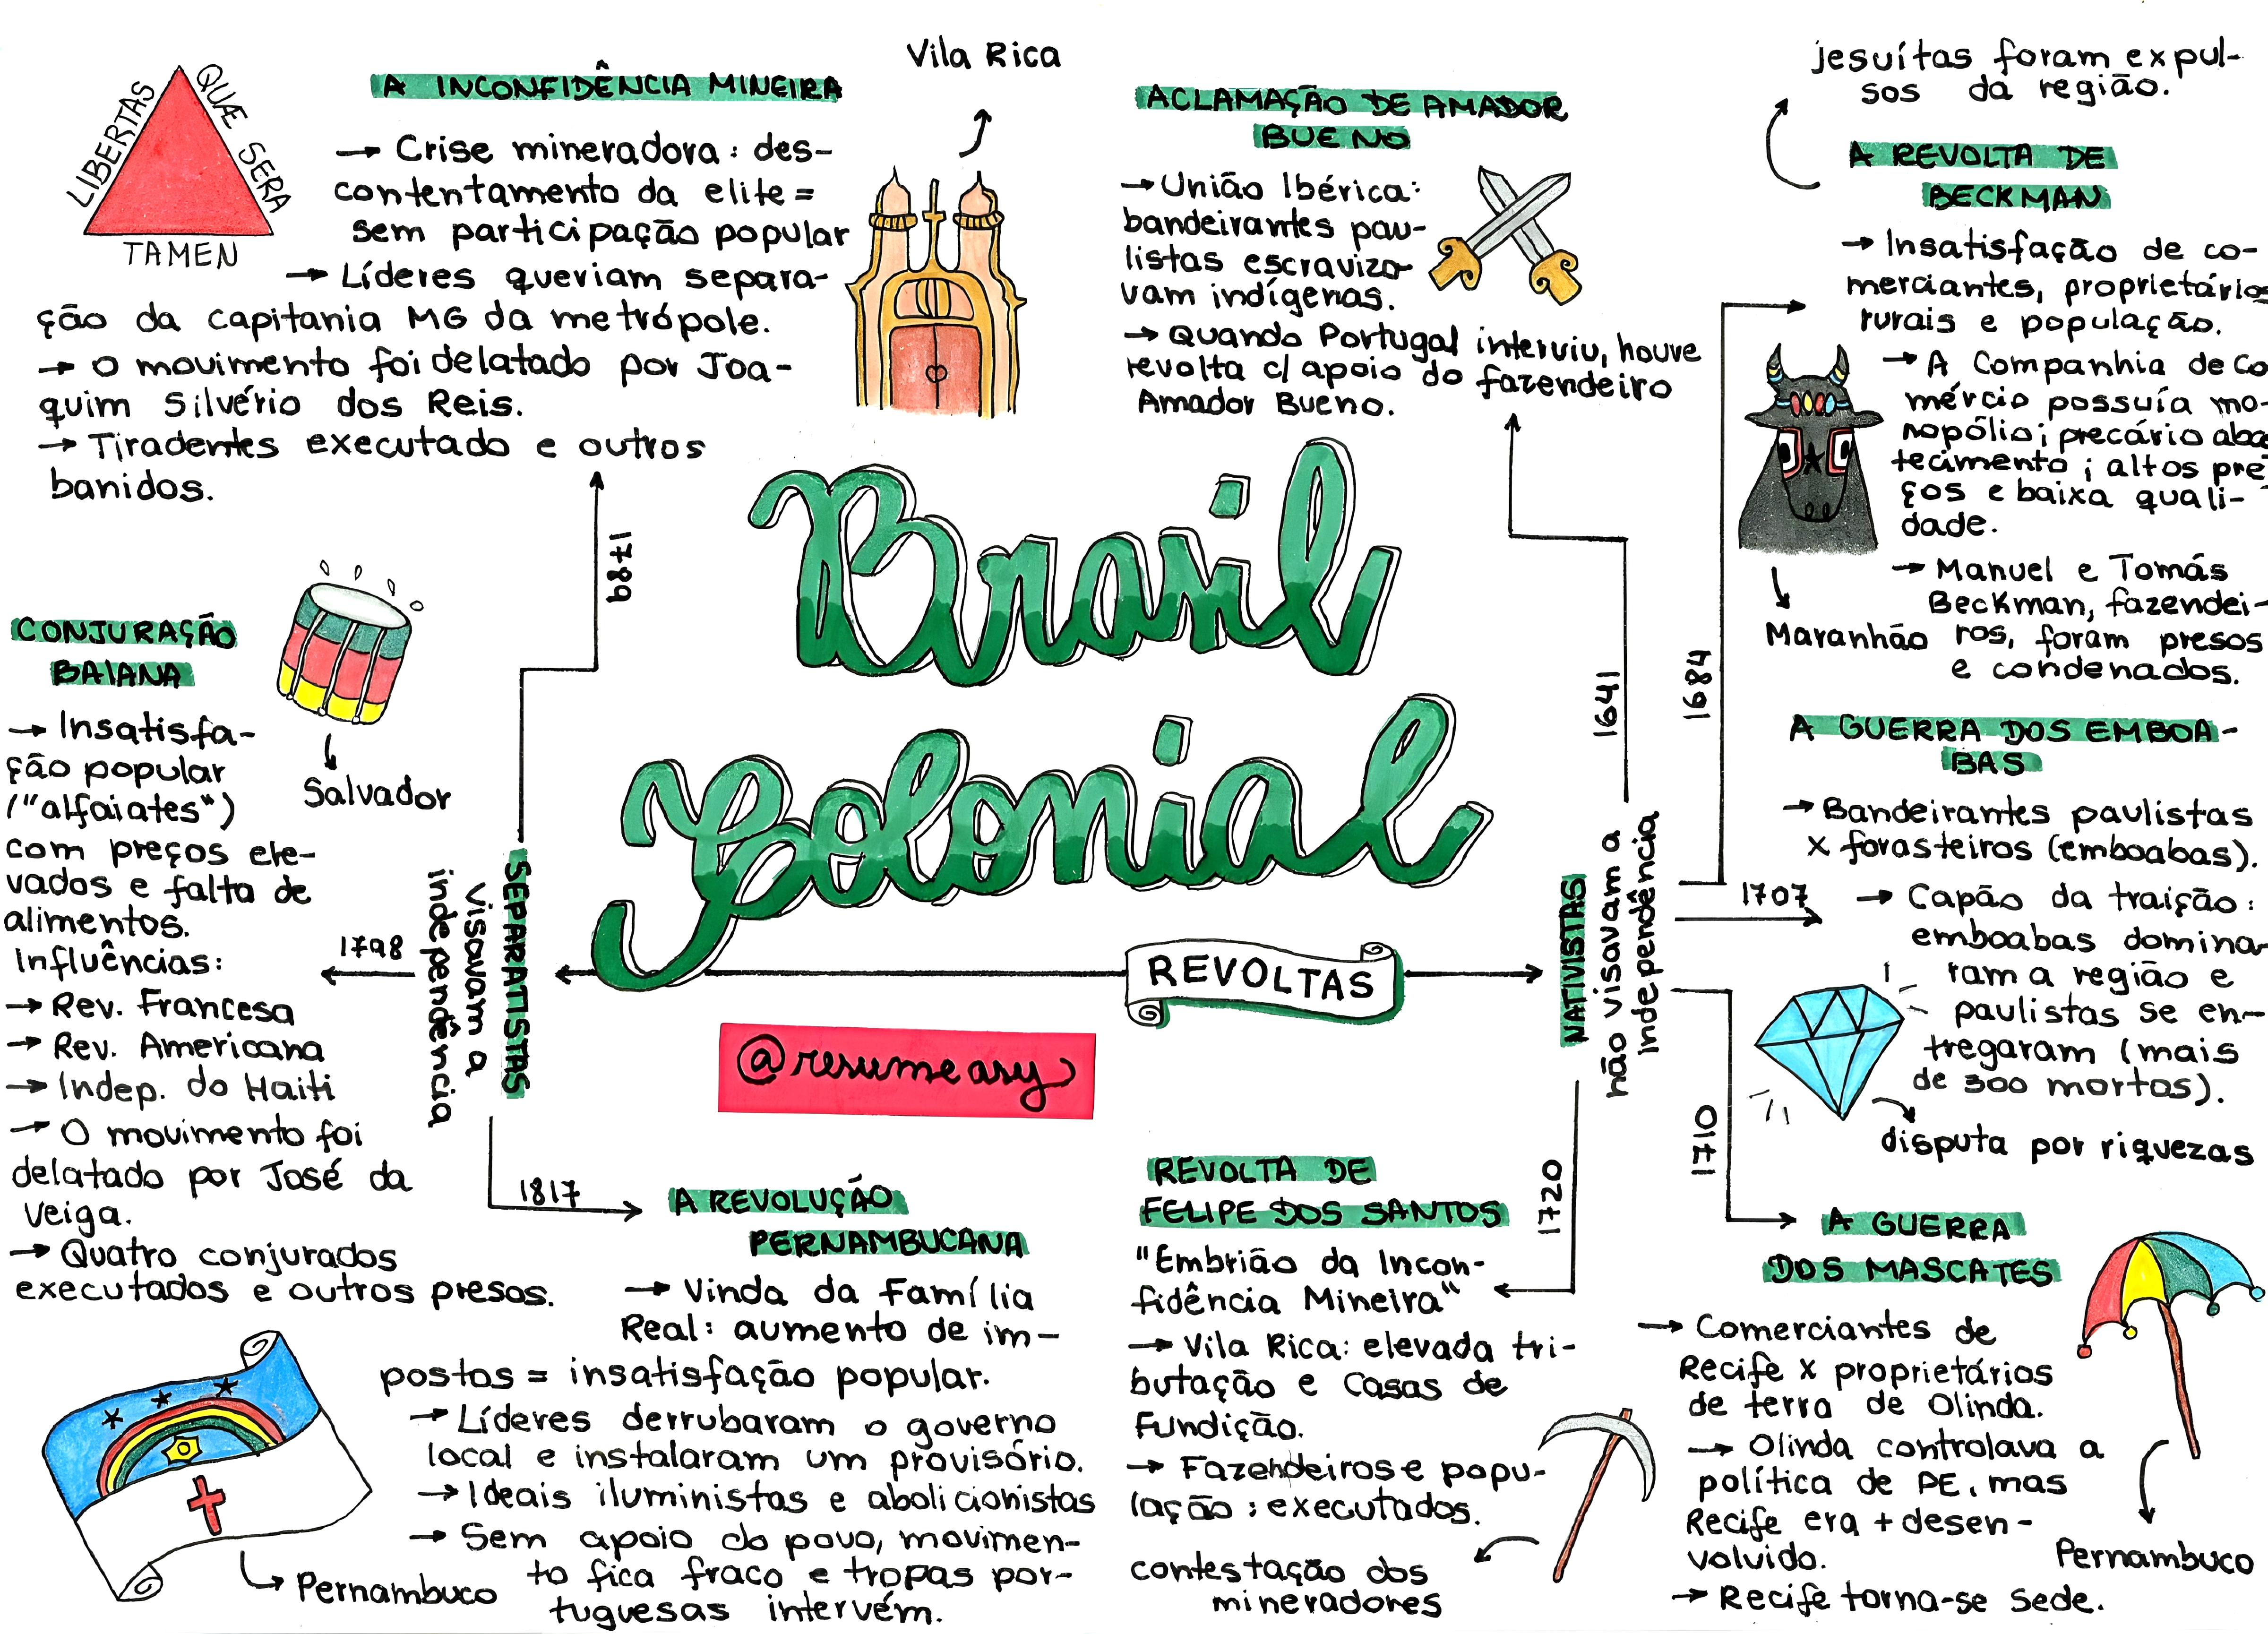 LIBERTAS
QUÆ SERA
TAMEN
A INCONFIDÊNCIA MINEIRA
→ Crise mineradora: des-
contentamento da elite =
sem participação popular
→ Líderes queriam separa-
ção da capitania MG da metrópole.
→ O movimento foi delatado por Joa-
quim Silvério dos Reis.
→ Tiradentes executado e outros
banidos.
Vila Rica
1789
ACLAMAÇÃO DE AMADOR
BUENO
→ União Ibérica:
bandeirantes pau-
listas escraviza-
vam indígenas.
→ Quando Portugal interviu, houve
revolta c/ apoio do fazendeiro
Amador Bueno.
1641
jesuítas foram expul-
sos da região.
A REVOLTA DE
BECKMAN
→ Insatisfação de co-
merciantes, proprietários
rurais e população.
→ A Companhia de Co
mércio possuía mo-
nopólio; precário aba
tecimento; altos pre
ços e baixa quali-
dade.
→ Manuel e Tomás
Beckman, fazendei-
ros, foram presos
e condenados.
Maranhão
1684
Brasil
Colonial
REVOLTAS
@resumeasy
CONJURAÇÃO
BAIANA
→ Insatisfa-
ção popular
("alfaiates")
com preços ele-
vados e falta de
alimentos.
Influências:
→ Rev. Francesa
→ Rev. Americana
→ Indep. do Haiti
→ O movimento foi
delatado por José da
Veiga.
→ Quatro conjurados
executados e outros presos.
Salvador
1798
SEPARATISTAS
visavam a
independência
NATIVISTAS
não visavam a
independência
1707
A GUERRA DOS EMBOA-
BAS
→ Bandeirantes paulistas
x forasteiros (emboabas).
→ Capão da traição:
emboabas domina-
ram a região e
paulistas se en-
tregaram (mais
de 300 mortos).
disputa por riquezas
1817
A REVOLUÇÃO
PERNAMBUCANA
→ Vinda da Família
Real: aumento de im-
postos = insatisfação popular.
→ Líderes derrubaram o governo
local e instalaram um provisório.
→ Ideais iluministas e abolicionistas
→ Sem apoio do povo, movimen-
to fica fraco e tropas por-
tuguesas intervém.
Pernambuco
1720
REVOLTA DE
FELIPE DOS SANTOS
"Embrião da Incon-
fidência Mineira"
→ Vila Rica: elevada tri-
butação e Casas de
Fundição.
→ Fazendeiros e popu-
lação: executados.
contestação dos
mineradores
1710
A GUERRA
DOS MASCATES
→ Comerciantes de
Recife x proprietários
de terra de Olinda.
→ Olinda controlava a
política de PE, mas
Recife era + desen-
volvido.
→ Recife torna-se sede.
Pernambuco